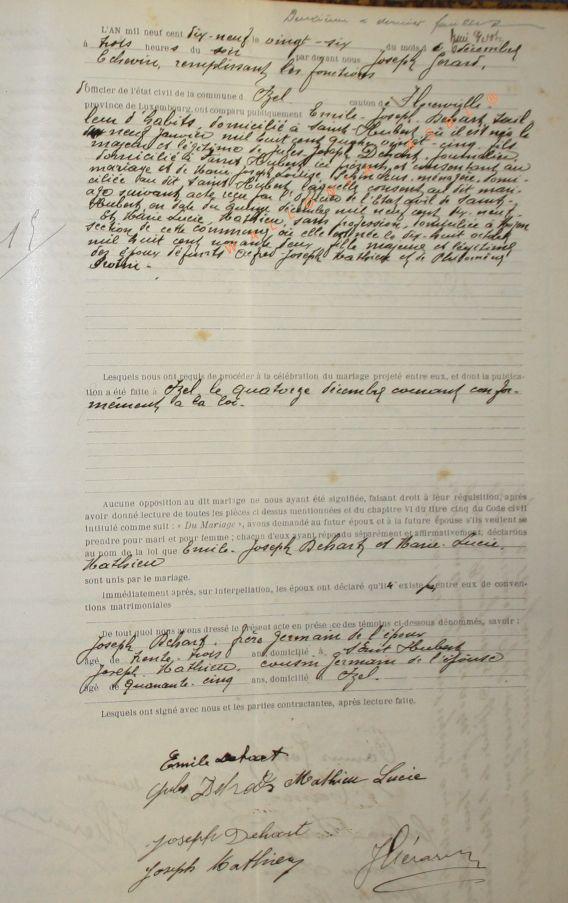 Deuxième & dernier
L'AN mil neuf cent dix-neuf le vingt-six du mois de décembre
à trois heures du soir par devant nous Joseph Gérard,
Echevin, remplissant les fonctions
d'Officier de l'état civil de la commune d'Izel canton de Florenville
province de Luxembourg, ont comparu publiquement Emile-Joseph Dehart, tail
leur d'habits, domicilié à Saint-Hubert, où il est né le
neuf janvier mil huit cent quatre vingt-cinq, fils
majeur et légitime de Jules Joseph Dehart, journalier,
domicilié à Saint Hubert, ici présent et consentant au
mariage et de Marie Josèphe ménagère, domi-
ciliée au dit Saint Hubert, laquelle consent au dit mari-
age suivant acte reçu par l'officier de l'Etat civil de Saint-
Hubert en date du quinze décembre mil neuf cent dix-neuf.
Et Marie Lucie Mathieu sans profession, domiciliée à
section de cette commune où elle est née le dix-huit octobre
mil huit cent nonante deux, fille majeure et légitime
des époux défunts Joseph Mathieu et de Philomène
15
Lesquels nous ont requis de procéder à la célébration du mariage projeté entre eux, et dont la publica-
tion a été faite à Izel le quatorze décembre courant confor-
mément à la loi.
Aucune opposition au dit mariage ne nous ayant été signifiée, faisant droit à leur réquisition, après
avoir donné lecture de toutes les pièces ci dessus mentionnées et du chapitre VI du titre cinq du Code civil
intitulé comme suit : « Du Mariage », avons demandé au futur époux et à la future épouse s'ils veulent se
prendre pour mari et pour femme ; chacun d'eux ayant répondu séparément et affirmativement, déclarons
au nom de la loi que Emile-Joseph Dehart et Marie-Lucie
Mathieu
sont unis par le mariage.
Immédiatement après, sur interpellation, les époux ont déclaré qu'il existe entre eux de conven-
tions matrimoniales
De tout quoi nous avons dressé le présent acte en présence des témoins ci-dessous dénommés, savoir :
Joseph Dehart, frère germain de l'époux
âgé de trente-trois ans, domicilié à Saint Hubert
Joseph Mathieu, cousin germain de l'épouse
âgé de quarante-cinq ans, domicilié à Izel.
Lesquels ont signé avec nous et les parties contractantes, après lecture faite.
Emile Dehart
Jules Dehart Mathieu Lucie
Joseph Dehart
Joseph Mathieu JGérard